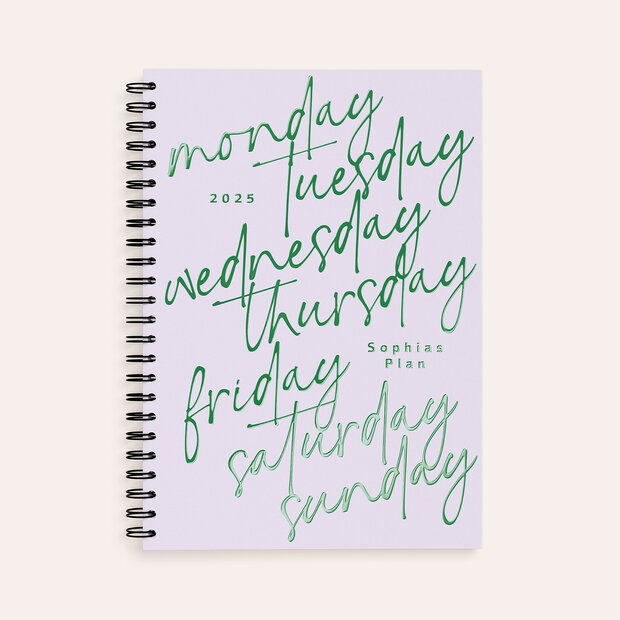 monday
tuesday
2025
wednesday
thursday
Sophias
Plan
friday
saturday
sunday